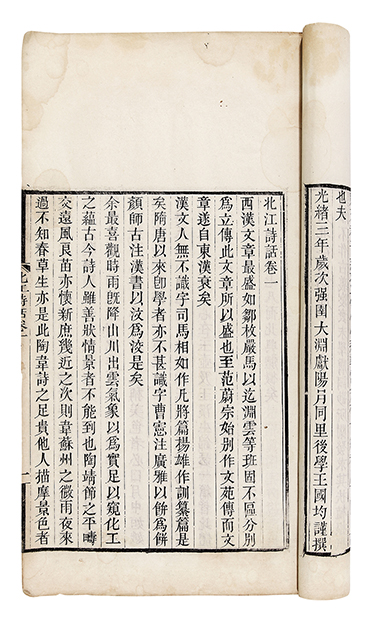 也夫
光緒三年歲次强圉大淵獻陽月同里後學王國均謹撰
北江詩話卷一
西漢文章最盛如鄒枚嚴馬以迄淵雲等班固不區分別
爲立傳此文章所以盛也至范蔚宗始別作文苑傳而文
章遂自東漢衰矣
漢文人無不識字司馬相如作凡將篇揚雄作訓纂篇是
矣隋唐以來卽學者亦不甚識字曹憲注廣雅以餅爲餅
顏師古注漢書以汶爲是矣
余最喜觀時雨旣降山川出雲氣象以爲實足以窺化工
之蘊古今詩人雖善狀情景者不能到也陶靖節之平疇
交遠風良苗亦懷新庶幾近之次則韋蘇州之微雨夜來
過不知春草生亦是此陶韋詩之足貴他人描摩景色者
北江詩話卷一
一